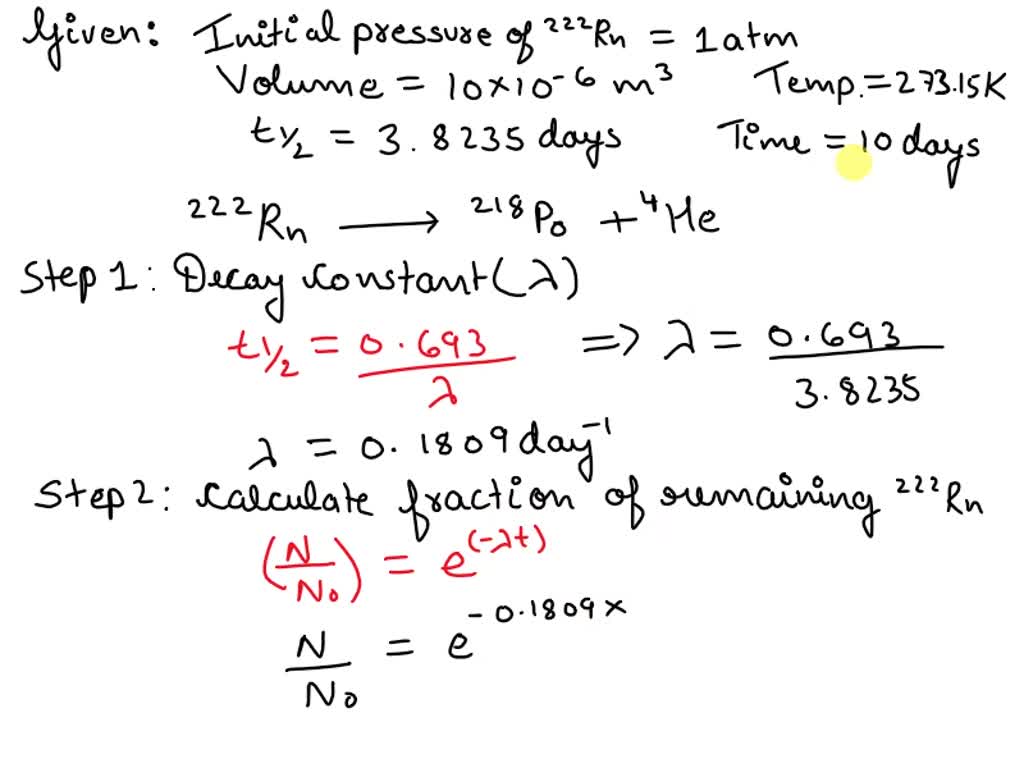 Given: Initial pressure of ²²²Rn = 1 atm
Volume = 10×10⁻⁶ m³ Temp. = 273.15K
t½ = 3.8235 days Time = 10 days
²²²Rn ⟶ ²¹⁸Po + ⁴He
Step 1: Decay constant (λ)
t½ = 0.693/λ => λ = 0.693/3.8235
λ = 0.1809 day⁻¹
Step 2: Calculate fraction of remaining ²²²Rn
(N/N₀) = e^(-λt)
N/N₀ = e^-0.1809×